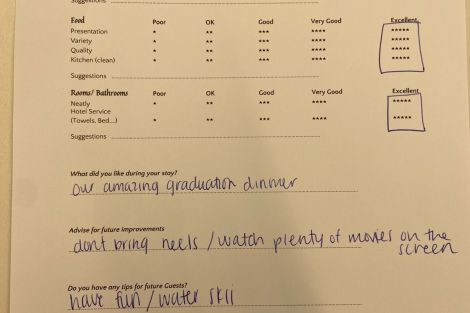 Suggestions
Food Poor OK Good Very Good Excellent
Presentation * ** *** **** *****
Variety * ** *** **** *****
Quality * ** *** **** *****
Kitchen (clean) * ** *** **** *****
Suggestions
Rooms/ Bathrooms Poor OK Good Very Good Excellent
Neatly * ** *** **** *****
Hotel Service
(Towels, Bed...) * ** *** **** *****
Suggestions
What did you like during your stay?
our amazing graduation dinner
Advise for future improvements
dont bring heels / watch plenty of movies on the
screen
Do you have any tips for future Guests?
have fun / water skii